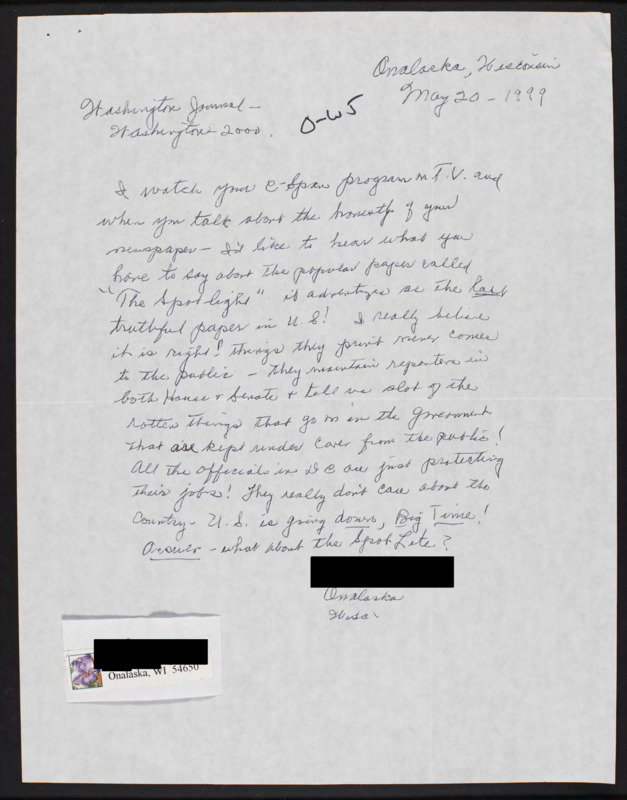 Onalaska, Wisconsin
May 20 - 1999
Washington Journal -
Washington 2000.
O-W5
I watch your C-Span program on T.V. and
when you talk about the honesty of your
newspaper - I'd like to hear what you
have to say about the popular paper called
"The Spotlight" it advertizes as the Last
truthful paper in U.S! I really believe
it is right! things they print never comes
to the public - they maintain reporters in
both House & Senate & tell us alot of the
rotten things that go on in the government
that are kept under cover from the public!
All the officials in D C are just protecting
their jobs! They really don't care about the
Country - U.S. is going down, Big Time!
Answer - what about the Spot Lite?
Onalaska
Wisc.
Onalaska, WI 54650